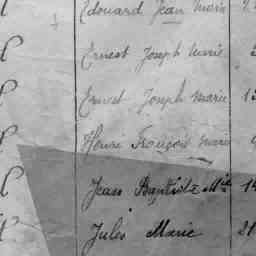 Edouard Jean Marie 2
Ernest Joseph Marie
Ernest Joseph Marie 13
Henri François Marie
Jean Baptiste Mie 14
Jules Marie 21